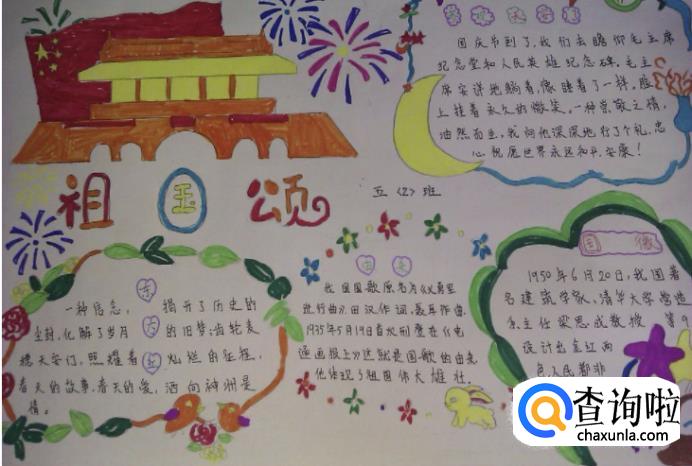 国庆节到了,我们去瞻仰毛主席
纪念堂和人民英雄纪念碑。毛主
席安详地躺着,像睡着了一样,脸
上挂着永久的微笑。一种崇敬之情,
油然而生。我向他深深地行了个礼,忠
心祝愿世界永远和平、安康!
祖国颂
五〈2〉班
一种信念, 揭开了历史的
尘封,化解了岁月 的旧梦;齿轮麦
穗天安门,照耀着 灿烂的征程,
春天的故事,春天的爱,洒向神州是
情。
东
方
红
我国国歌原名为《义勇军
进行曲》。田汉作词,聂耳作曲。
1935年5月19日首次刊登在《电
通画报上》这就是国歌的由来
他体现了祖国伟大雄壮。
国徽
1950年6月20日,我国著
名建筑学家,清华大学营造
系主任梁思成教授 第9
设计出金红两
色人民都非
查询啦
chaxunla.com